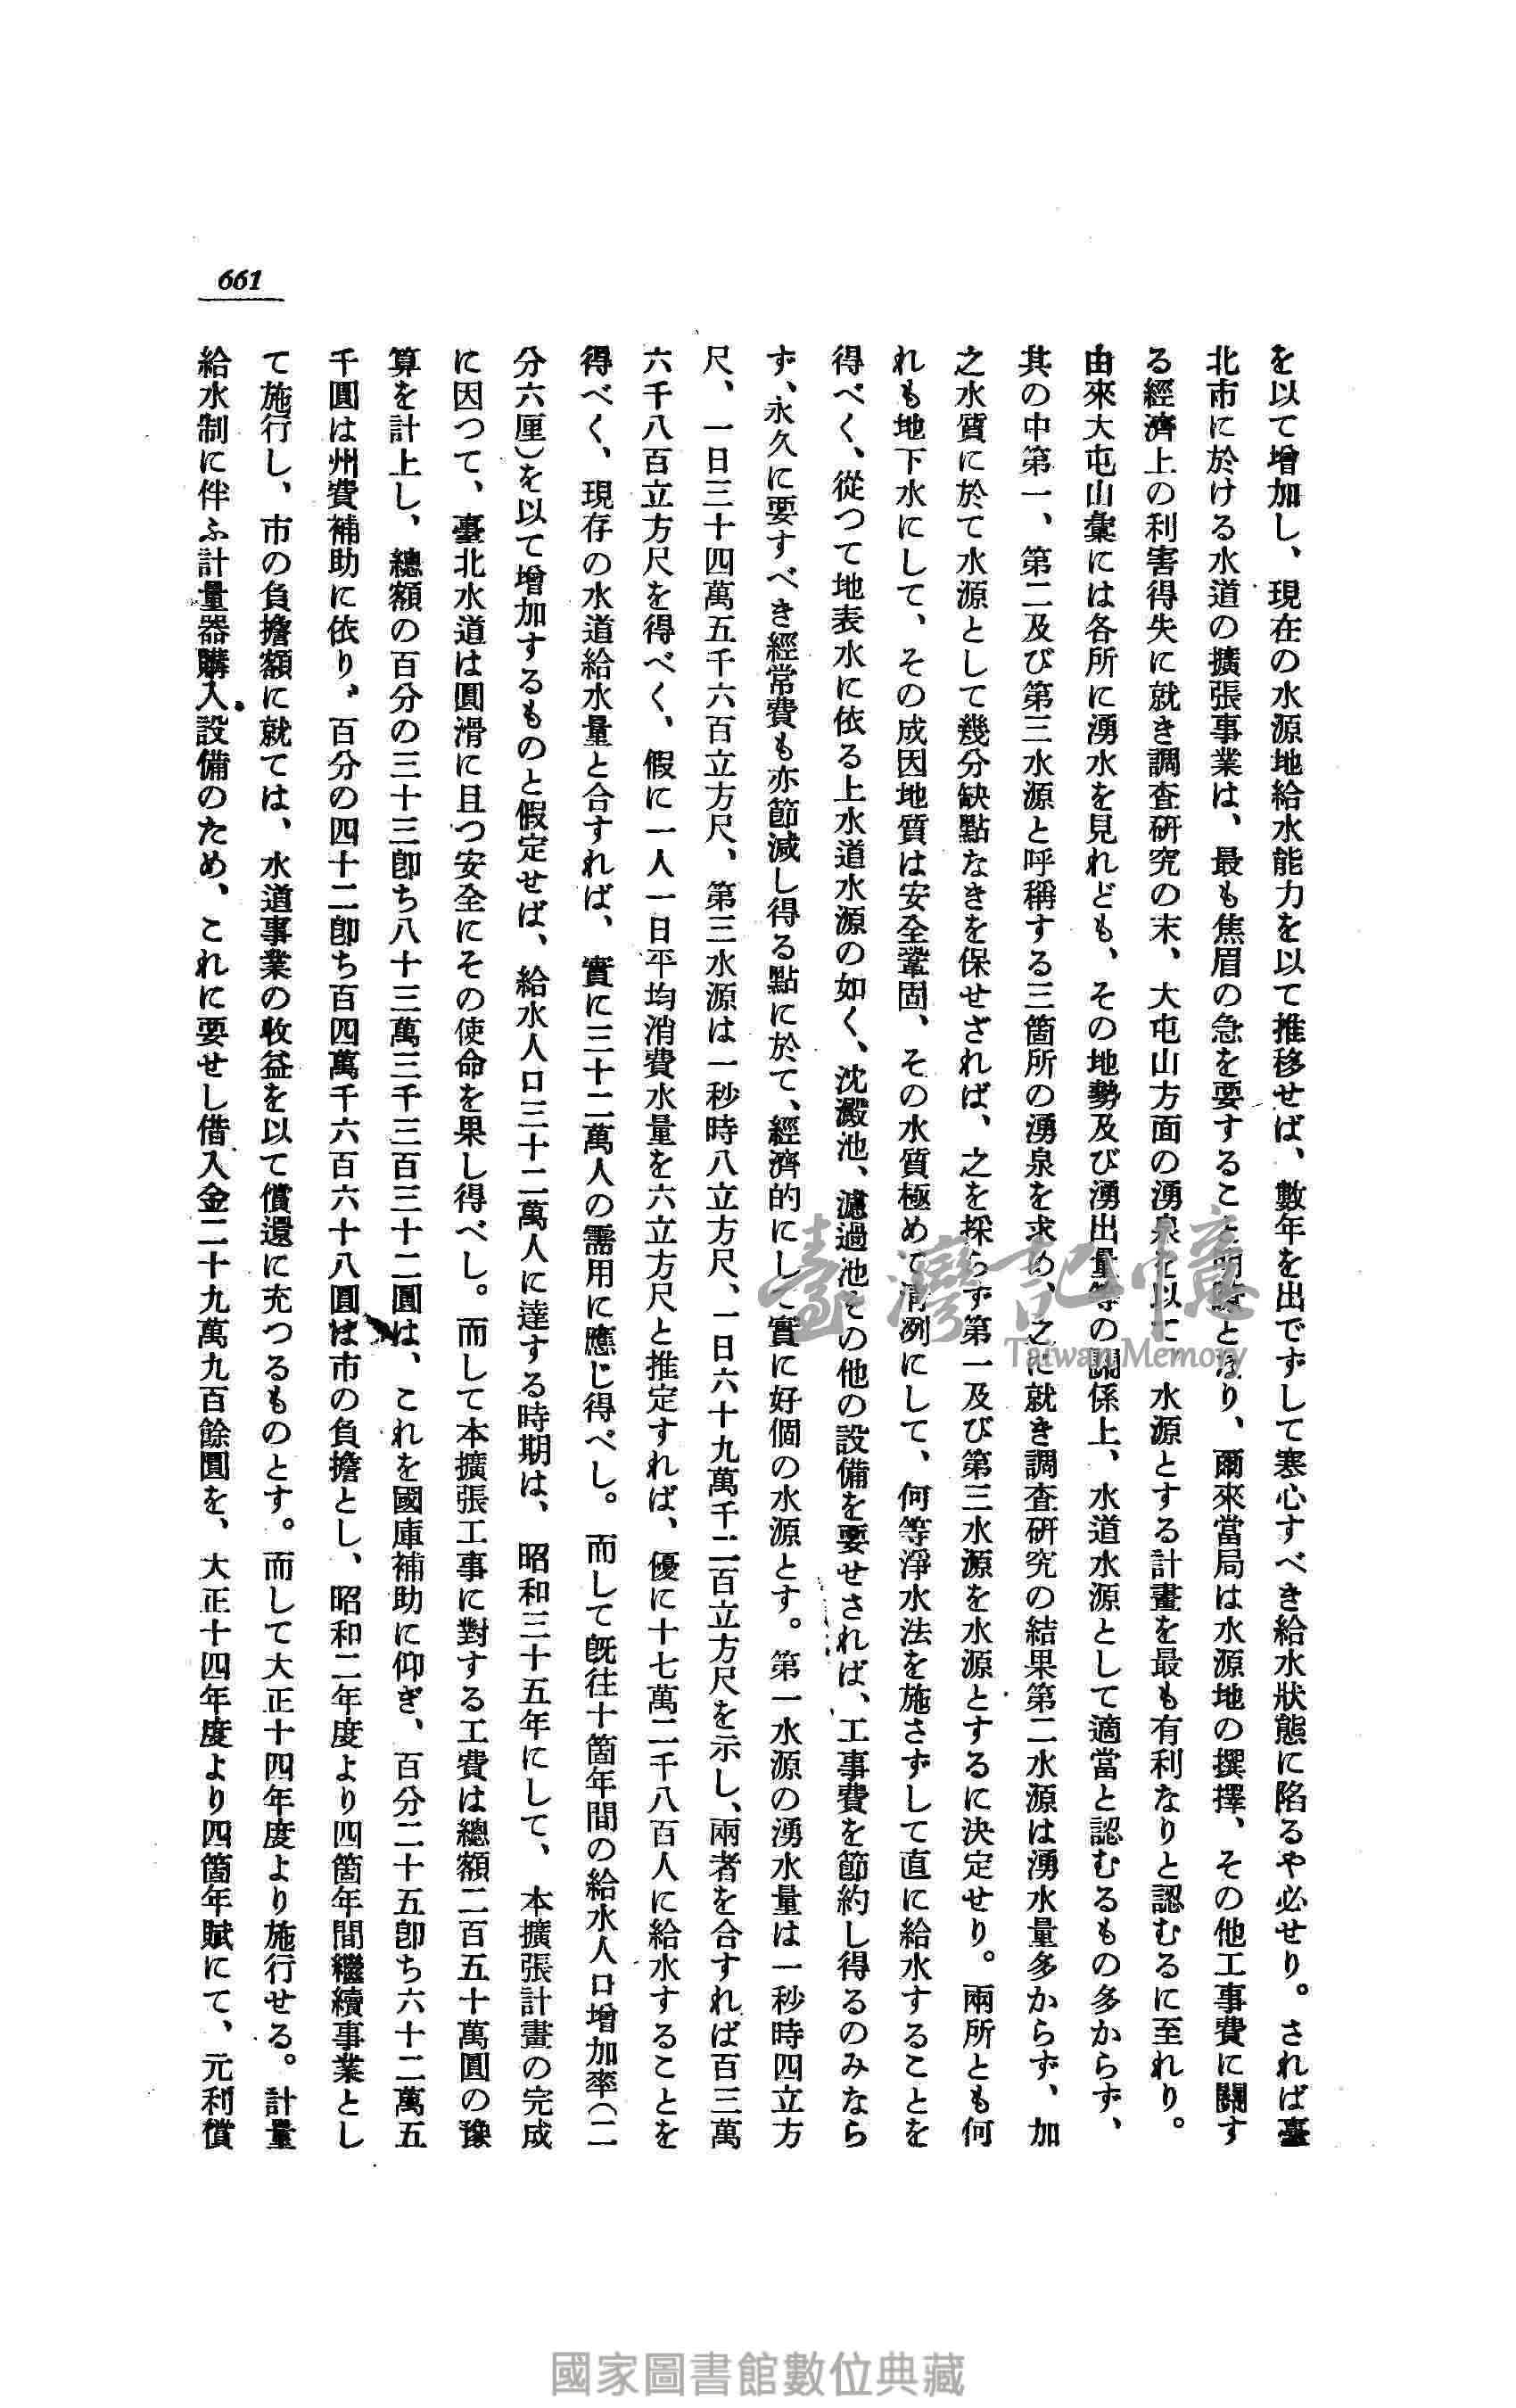 661
を以て增加し、現在の水源地給水能力を以て推移せば、數年を出でずして寒心すべき給水狀態に陷るや必せり。されば臺
北市に於ける水道の擴張事業は、最も焦眉の急を要すること明瞭となり、爾來當局は水源地の撰擇、その他工事費に關す
る經濟上の利害得失に就き調査硏究の末、大屯山方面の湧泉を以て、水源とする計畫を最も有利なりと認むるに至れり。
由來大屯山彙には各所に湧水を見れども、その地勢及び湧出量等の關係上、水道水源として適當と認むるもの多からず、
其の中第一、第二及び第三水源と呼稱する三箇所の湧泉を求め、之に就き調査硏究の結果第二水源は湧水量多からず、加
之水質に於て水源として幾分缺點なきを保せざれば、之を採らず第一及び第三水源を水源とするに決定せり。兩所とも何
れも地下水にして、その成因地質は安全鞏固、その水質極めて淸冽にして、何等淨水法を施さずして直に給水することを
得べく、從つて地表水に依る上水道水源の如く、沈澱池、濾過池その他の設備を要せざれば、工事費を節約し得るのみなら
ず、永久に要すべき經常費も亦節減し得る點に於て、經濟的にして實に好個の水源とす。第一水源の湧水量は一秒時四立方
尺、一日三十四萬五千六百立方尺、第三水源は一秒時八立方尺、一日六十九萬千二百立方尺を示し、兩者を合すれば百三萬
六千八百立方尺を得べく、假に一人一日平均消費水量を六立方尺と推定すれば、優に十七萬二千八百人に給水することを
得べく、現存の水道給水量と合すれば、實に三十二萬人の需用に應じ得べし。而して旣往十箇年間の給水人口增加率(二
分六厘)を以て增加するものと假定せば、給水人口三十二萬人に達する時期は、昭和三十五年にして、本擴張計畫の完成
に因つて、臺北水道は圓滑に且つ安全にその使命を果し得べし。而して本擴張工事に對する工費は總額二百五十萬圓の豫
算を計上し、總額の百分の三十三卽ち八十三萬三千三百三十二圓は、これを國庫補助に仰ぎ、百分二十五卽ち六十二萬五
千圓は州費補助に依り、百分の四十二卽ち百四萬千六百六十八圓は市の負擔とし、昭和二年度より四箇年間繼續事業とし
て施行し、市の負擔額に就ては、水道事業の收益を以て償還に充つるものとす。而して大正十四年度より施行せる。計量
給水制に伴ふ計量器購入設備のため、これに要せし借入金二十九萬九百餘圓を、大正十四年度より四箇年賦にて、元利償
臺灣記憶
Taiwan Memory
國家圖書館數位典藏